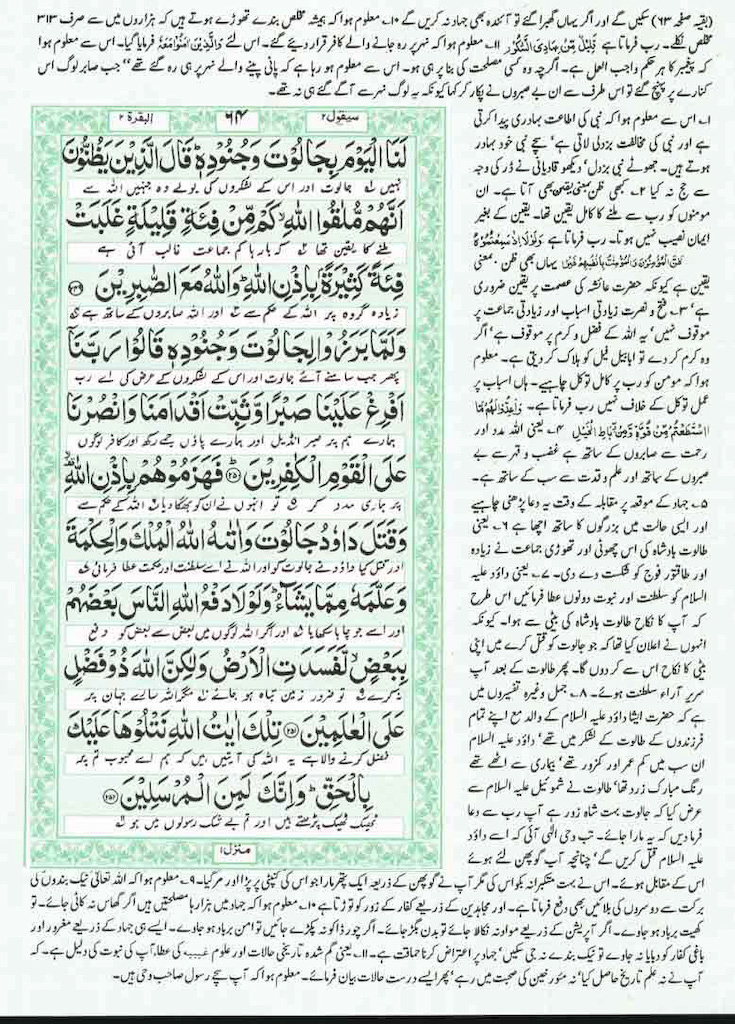 (بقیہ صفحہ ۶۳) سکیں گے اور اگر یہاں گھبرا گئے تو آئندہ بھی جہاد نہ کریں گے ۱۰۔ معلوم ہوا کہ ہمیشہ مخلص بندے تھوڑے ہوتے ہیں کہ ہزاروں میں سے صرف ۳۱۳
مخلص نکلے۔ رب فرماتا ہے قَلِيْلٌ مِّنْ عِبَادِيَ الشَّكُوْرُ ۱۱۔ معلوم ہوا کہ نہر پر رہ جانے والے کافر قرار دیئے گئے۔ اس لئے وَالَّذِيْنَ اٰمَنُوْا مَعَهٗ فرمایا گیا۔ اس سے معلوم ہوا
کہ پیغمبر کا ہر حکم واجب العمل ہے۔ اگرچہ وہ کسی مصلحت کی بنا پر ہی ہو۔ اس سے معلوم ہو رہا ہے کہ پانی پینے والے نہر پر ہی رہ گئے تھے جب صابر لوگ اس
کنارے پر پہنچ گئے تو اس طرف سے ان بے صبروں نے پکار کر کہا کیونکہ یہ لوگ نہر سے آگے گئے ہی نہ تھے۔
سیقول ۲
۶۴
البقرة ۲
لَنَا الْيَوْمَ بِجَالُوْتَ وَجُنُوْدِهٖ قَالَ الَّذِيْنَ يَظُنُّوْنَ
نہیں جالوت اور اس کے لشکروں کی بولے وہ جنہیں اللہ سے
اَنَّهُمْ مُّلٰقُوا اللّٰهِ كَمْ مِّنْ فِئَةٍ قَلِيْلَةٍ غَلَبَتْ
ملنے کا یقین تھا کہ بارہا کم جماعت غالب آئی ہے
فِئَةً كَثِيْرَةً بِاِذْنِ اللّٰهِ وَاللّٰهُ مَعَ الصّٰبِرِيْنَ ۲۴۹
زیادہ گروہ پر اللہ کے حکم سے اور اللہ صابروں کے ساتھ ہے
وَلَمَّا بَرَزُوْا لِجَالُوْتَ وَجُنُوْدِهٖ قَالُوْا رَبَّنَا
پھر جب سامنے آئے جالوت اور اس کے لشکروں کے عرض کی اے رب
اَفْرِغْ عَلَيْنَا صَبْرًا وَّثَبِّتْ اَقْدَامَنَا وَانْصُرْنَا
ہمارے ہم پر صبر انڈیل اور ہمارے پاؤں جمے رکھ اور کافر لوگوں
عَلَى الْقَوْمِ الْكٰفِرِيْنَ ۲۵۰ فَهَزَمُوْهُمْ بِاِذْنِ اللّٰهِ
پر ہماری مدد کر تو انہوں نے ان کو بھگا دیا اللہ کے حکم سے
وَقَتَلَ دَاوٗدُ جَالُوْتَ وَاٰتٰهُ اللّٰهُ الْمُلْكَ وَالْحِكْمَةَ
اور قتل کیا داؤد نے جالوت کو اور اللہ نے اسے سلطنت اور حکمت عطا فرمائی
وَعَلَّمَهٗ مِمَّا يَشَآءُ وَلَوْلَا دَفْعُ اللّٰهِ النَّاسَ بَعْضَهُمْ
اور اسے جو چاہا سکھایا اور اگر اللہ لوگوں میں بعض سے بعض کو دفع
بِبَعْضٍ لَّفَسَدَتِ الْاَرْضُ وَلٰكِنَّ اللّٰهَ ذُوْ فَضْلٍ
نہ کرے تو ضرور زمین تباہ ہو جائے مگر اللہ سارے جہان پر
عَلَى الْعٰلَمِيْنَ ۲۵۱ تِلْكَ اٰيٰتُ اللّٰهِ نَتْلُوْهَا عَلَيْكَ
فضل کرنے والا ہے یہ اللہ کی آیتیں ہیں کہ ہم اے محبوب تم پر
بِالْحَقِّ وَاِنَّكَ لَمِنَ الْمُرْسَلِيْنَ ۲۵۲
ٹھیک ٹھیک پڑھتے ہیں اور تم بے شک رسولوں میں ہو
منزل ۱
۱۔ اس سے معلوم ہوا کہ نبی کی اطاعت بہادری پیدا کرتی
ہے اور نبی کی مخالفت بزدلی لاتی ہے سچے نبی خود بہادر
ہوتے ہیں۔ جھوٹے نبی بزدل دیکھو قادیانی نے ڈر کی وجہ
سے حج نہ کیا ۲۔ کبھی ظن بمعنی یقین بھی آتا ہے۔ ان
مومنوں کو رب سے ملنے کا کامل یقین تھا۔ یقین کے بغیر
ایمان نصیب نہیں ہوتا۔ رب فرماتا ہے وَلَوْلَا اِذْ سَمِعْتُمُوْهُ
ظَنَّ الْمُؤْمِنُوْنَ وَالْمُؤْمِنٰتُ بِاَنْفُسِهِمْ خَيْرًا یہاں بھی ظن بمعنی
یقین ہے کیونکہ حضرت عائشہ کی عصمت پر یقین ضروری
ہے ۳۔ فتح و نصرت زیادتی اسباب اور زیادتی جماعت پر
موقوف نہیں یہ اللہ کے فضل و کرم پر موقوف ہے اگر
وہ کرم کر دے تو ابابیل فیل کو ہلاک کر دیتی ہے۔ معلوم
ہوا کہ مومن کو رب پر کامل توکل چاہیے۔ ہاں اسباب پر
عمل توکل کے خلاف نہیں رب فرماتا ہے۔ وَاَعِدُّوْا لَهُمْ مَّا
اسْتَطَعْتُمْ مِّنْ قُوَّةٍ وَّمِنْ رِّبَاطِ الْخَيْلِ ۴۔ یعنی اللہ مدد اور
رحمت سے صابروں کے ساتھ ہے غضب و قہر سے بے
صبروں کے ساتھ اور علم و قدرت سے سب کے ساتھ ہے۔
۵۔ جہاد کے موقعہ پر مقابلہ کے وقت یہ دعا پڑھنی چاہیے
اور ایسی حالت میں بزرگوں کا ساتھ اچھا ہے ۶۔ یعنی
طالوت بادشاہ کی اس چھوٹی اور تھوڑی جماعت نے زیادہ
اور طاقتور فوج کو شکست دے دی۔ ۷۔ یعنی داؤد علیہ
السلام کو سلطنت اور نبوت دونوں عطا فرمائیں اس طرح
کہ آپ کا نکاح طالوت بادشاہ کی بیٹی سے ہوا۔ کیونکہ
انہوں نے اعلان کیا تھا کہ جو جالوت کو قتل کرے میں اپنی
بیٹی کا نکاح اس سے کر دوں گا۔ پھر طالوت کے بعد آپ
سریر آراء سلطنت ہوئے۔ ۸۔ جمل وغیرہ تفسیروں میں
ہے کہ حضرت ایشا داؤد علیہ السلام کے والد مع اپنے تمام
فرزندوں کے طالوت کے لشکر میں تھے داؤد علیہ السلام
ان سب میں کم عمر اور کمزور تھے بیماری سے اٹھے تھے
رنگ مبارک زرد تھا طالوت نے شموئیل علیہ السلام سے
عرض کیا کہ جالوت بہت شاہ زور ہے آپ رب سے دعا
فرما دیں کہ یہ مارا جائے۔ تب وحی الٰہی آئی کہ اسے داؤد
علیہ السلام قتل کریں گے چنانچہ آپ گوپھن لئے ہوئے
اس کے مقابل ہوئے۔ اس نے بہت متکبرانہ بکواس کی مگر آپ نے گوپھن کے ذریعہ ایک پتھر مارا جو اس کی کنپٹی پر پڑا اور مر گیا۔ ۹۔ معلوم ہوا کہ اللہ تعالیٰ نیک بندوں کی
برکت سے دوسروں کی بلائیں بھی دفع فرماتا ہے۔ اور مجاہدین کے ذریعے کفار کے زور کو توڑتا ہے ۱۰۔ معلوم ہوا کہ جہاد میں ہزارہا مصلحتیں ہیں اگر گھاس نہ کاٹی جائے۔ تو
کھیت برباد ہو جاوے۔ اگر آپریشن کے ذریعے مواد نہ نکالا جائے تو بدن بگڑ جائے۔ اگر چور ڈاکو نہ پکڑے جائیں تو امن برباد ہو جاوے۔ ایسے ہی جہاد کے ذریعے مغرور اور
باغی کفار کو دبایا نہ جاوے تو نیک بندے نہ جی سکیں جہاد پر اعتراض کرنا حماقت ہے۔ ۱۱۔ یعنی گم شدہ تاریخی حالات اور علوم غیبیہ کی عطاء آپ کی نبوت کی دلیل ہے۔ کہ
آپ نے نہ علم تاریخ حاصل کیا نہ مئورخین کی صحبت میں رہے پھر ایسے درست حالات بیان فرمائے۔ معلوم ہوا کہ آپ سچے رسول صاحب وحی ہیں۔